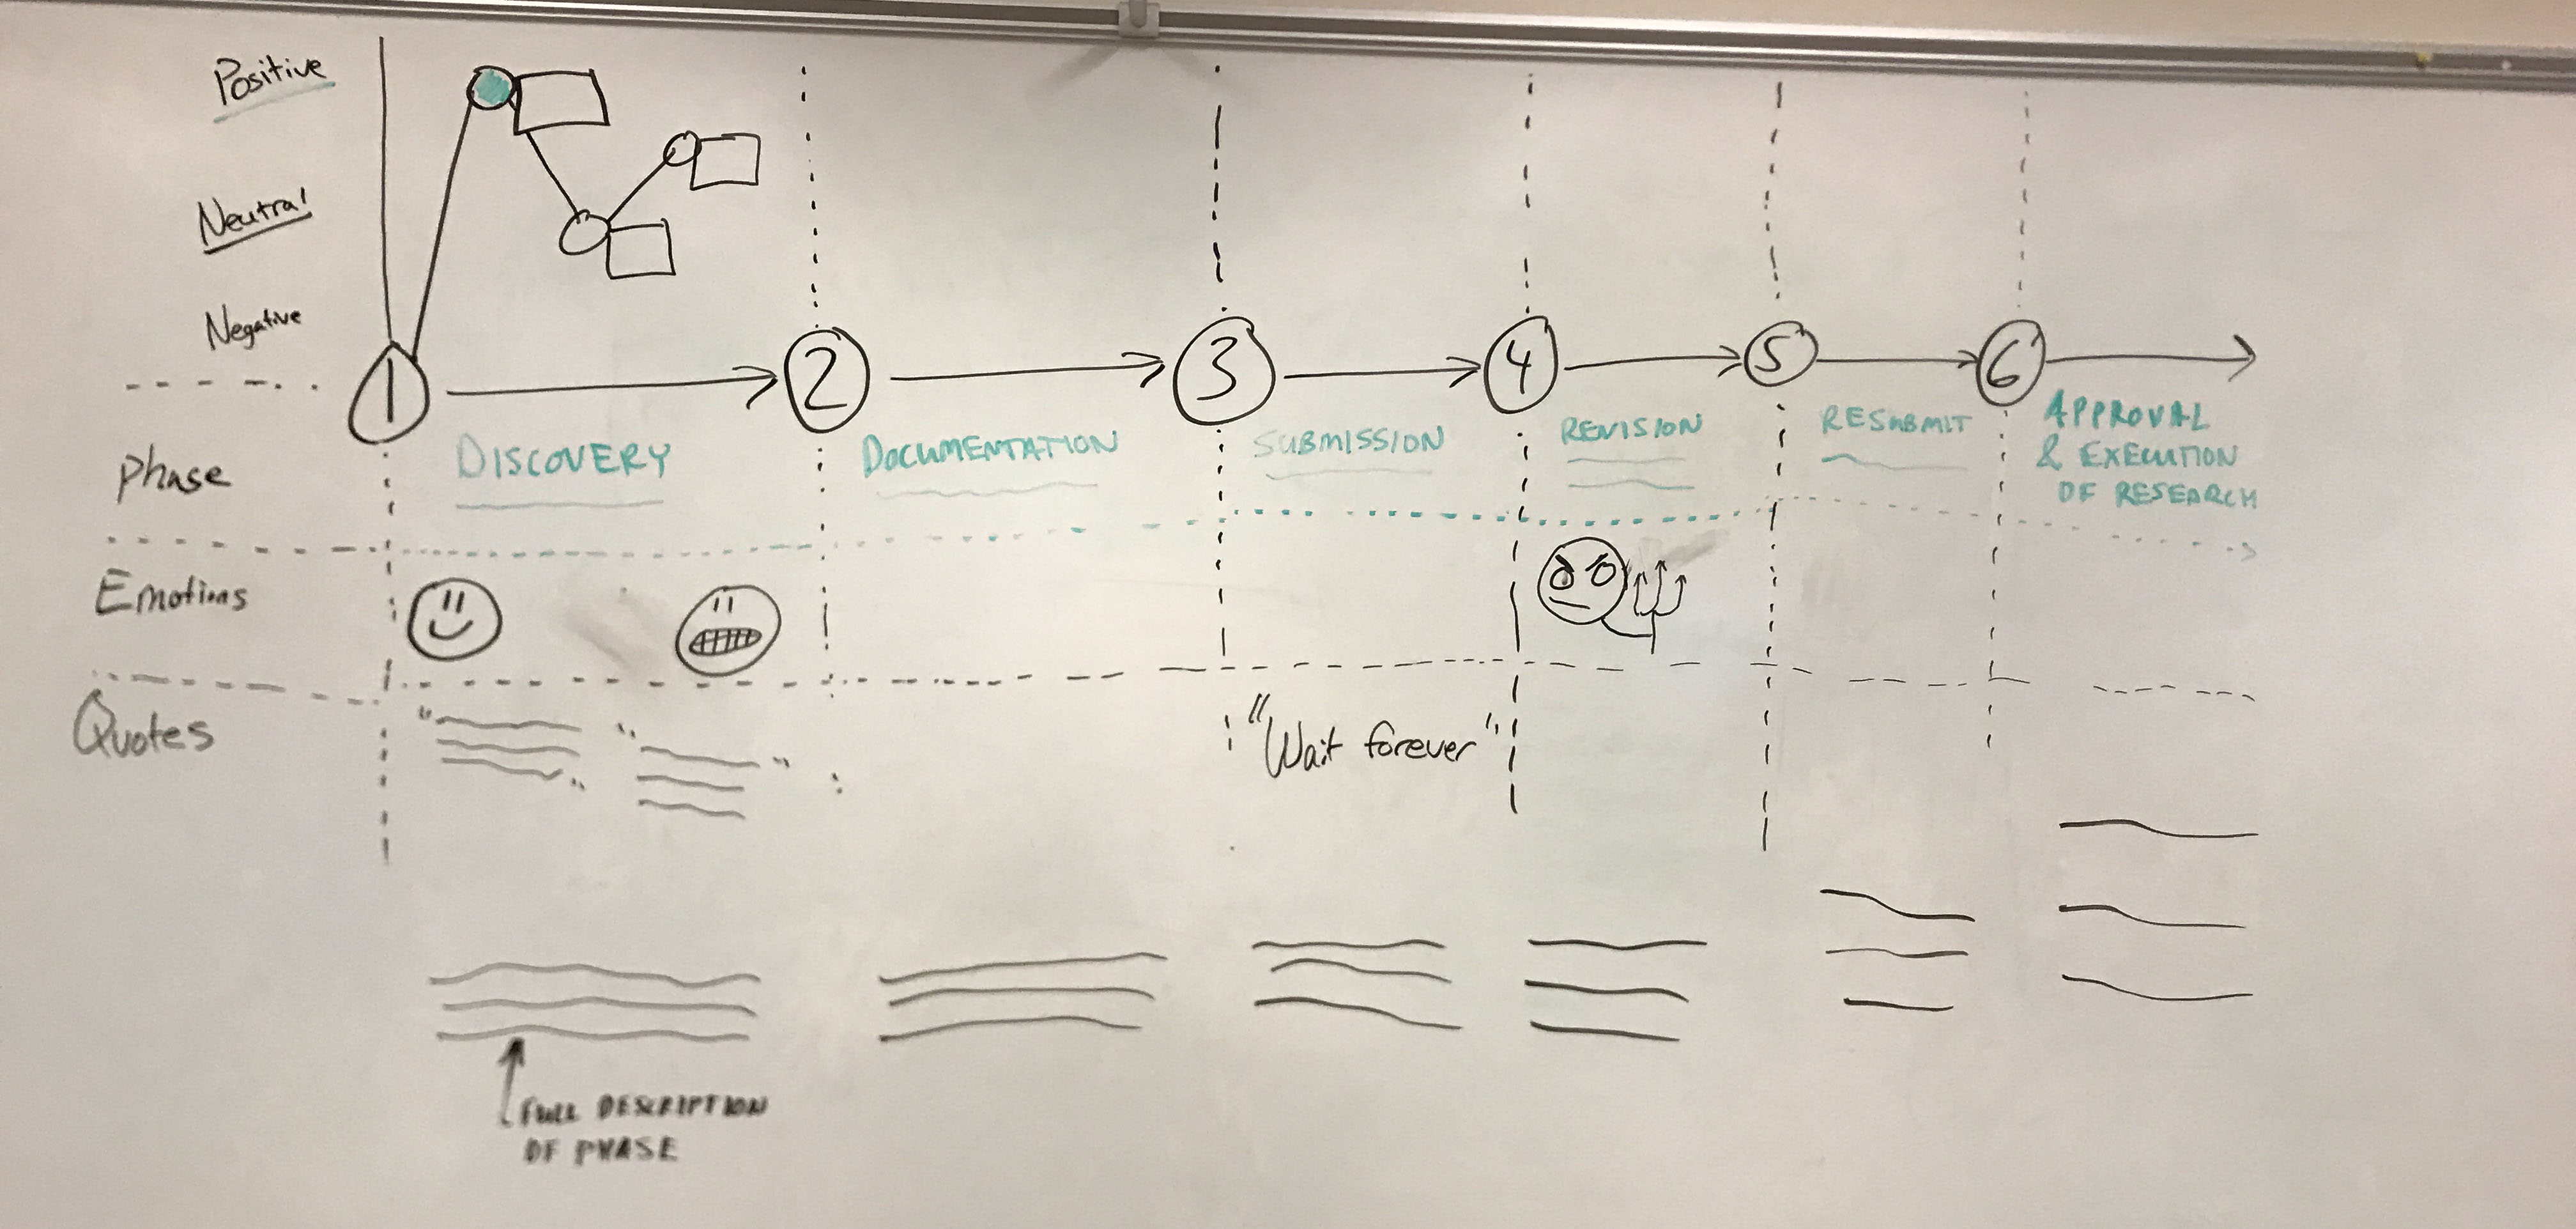 Positive
Neutral
Negative
1 2 3 4 5 6
Phase
DISCOVERY
DOCUMENTATION
SUBMISSION
REVISION
RESUBMIT
APPROVAL
& EXECUTION
OF RESEARCH
Emotions
Quotes
"Wait forever"
FULL DESCRIPTION
OF PHASE